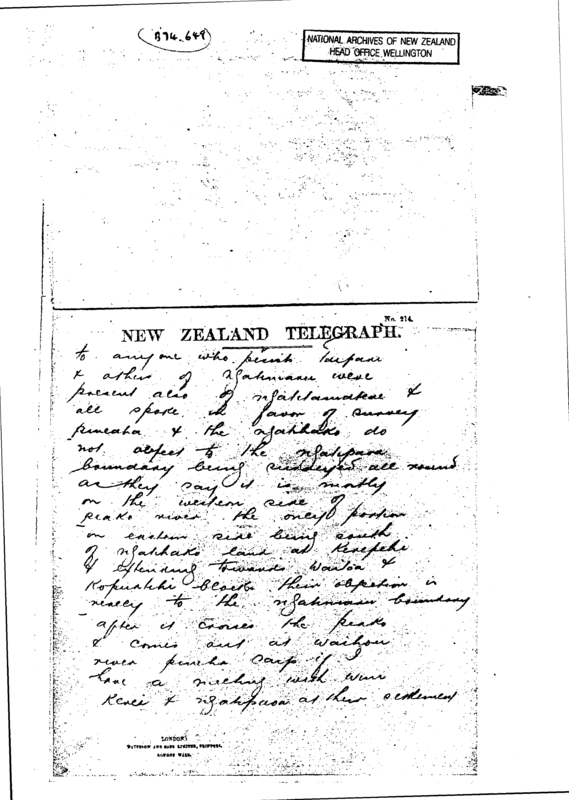 B74-649
NATIONAL ARCHIVES OF NEW ZEALAND
HEAD OFFICE WELLINGTON
No. 214.
NEW ZEALAND TELEGRAPH.
to anyone who
& others of Ngatimaru were
present also of Ngatitamatera &
all spoke in favor of survey
Pineaha & the Ngatihako do
not object to the Ngatipaoa
boundary being surveyed all round
as they say it is mostly
on the western side of
Piako river the only portion
on eastern side being south
of Ngatihako land at Kerepehi
& extending towards Waitoa &
Kopuatahi blocks their objection is
really to the Ngatimaru boundary
after it crosses the Piako
& comes out at Waihou
river Pineha says if I
have a meeting with Wini
Kerei & Ngatipaoa at their settlement
LONDON:
WATERLOW AND SONS LIMITED, PRINTERS,
LONDON WALL.